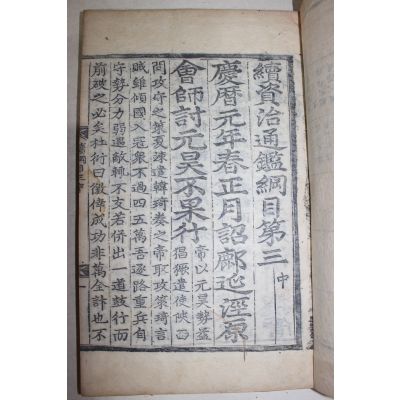 續資治通鑑綱目第三 中
慶曆元年春正月詔鄜延涇原
會師討元昊不果行 帝以元昊勢益
猖獗遣使陜西
問攻守之策夏竦遣韓琦等之帝取攻策琦言
賊雖傾國入寇衆不過四五萬吾逐路重兵自
守勢分力弱遇敵輒不支若併出一道鼓行而
前破之必矣杜衍曰徼倖成功非萬全計也不